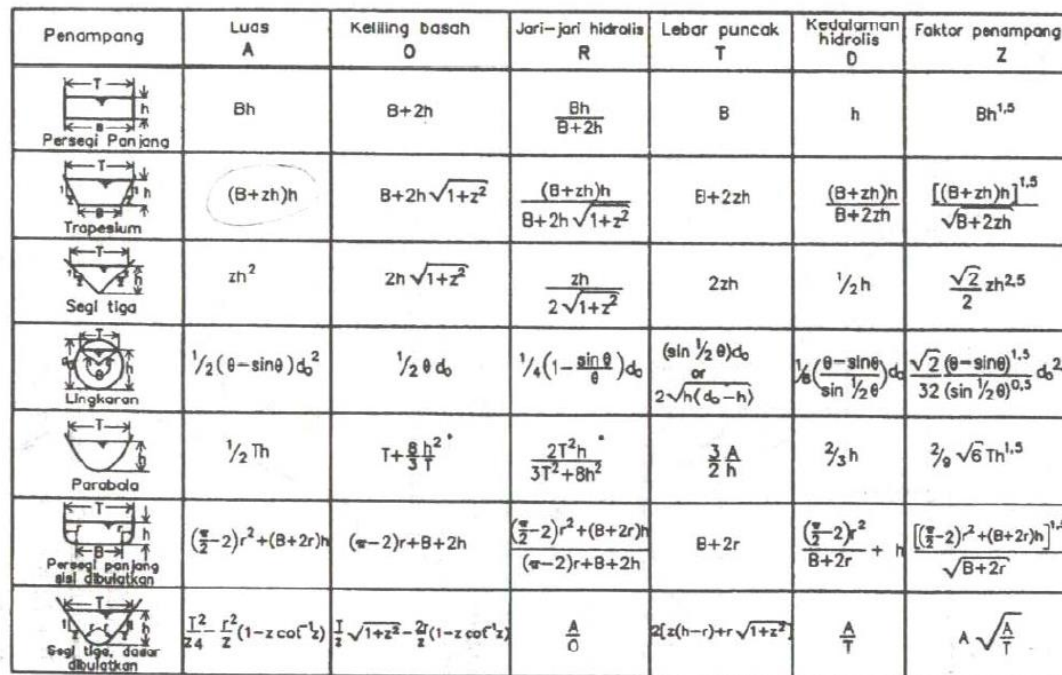 Penampang
Luas
A
Keliling basah
O
Jari-jari hidrolis
R
Lebar puncak
T
Kedalaman hidrolis
D
Faktor penampang
Z
T
h
B
Persegi Panjang
Bh
B+2h
Bh/(B+2h)
B
h
Bh^1,5
T
1
z
h
B
1
z
Trapesium
(B+zh)h
B+2h√(1+z²)
(B+zh)h/(B+2h√(1+z²))
B+2zh
(B+zh)h/(B+2zh)
[(B+zh)h]^1,5/√(B+2zh)
T
1
z
h
Segi tiga
zh²
2h√(1+z²)
zh/(2√(1+z²))
2zh
½h
(√2/2) zh^2,5
T
d₀
θ
h
Lingkaran
½(θ-sinθ)d₀²
½ θ d₀
¼(1-sin θ/θ)d₀
(sin ½ θ)d₀
or
2√(h(d₀-h))
⅛((θ-sinθ)/(sin ½θ))d₀
(√2/32) (θ-sinθ)^1,5/(sin ½θ)^0,5 d₀²
T
h
Parabola
½ Th
T+(8/3)(h²/T) *
2T²h/(3T²+8h²) *
(3/2)(A/h)
⅔ h
2/9 √6 Th^1,5
T
r
r
h
B
Persegi panjang
sisi dibulatkan
(π/2-2)r²+(B+2r)h
(π-2)r+B+2h
((π/2-2)r²+(B+2r)h)/((π-2)r+B+2h)
B+2r
(π/2-2)r²/(B+2r) + h
[(π/2-2)r²+(B+2r)h]^1,5/√(B+2r)
T
1
z
r
r
h
Segi tiga, dasar
dibulatkan
T²/z4 - r²/z (1-z cot⁻¹z)
T/z √(1+z²) - 2r/z (1-z cot⁻¹z)
A/O
2[z(h-r)+r√(1+z²)]
A/T
A√(A/T)